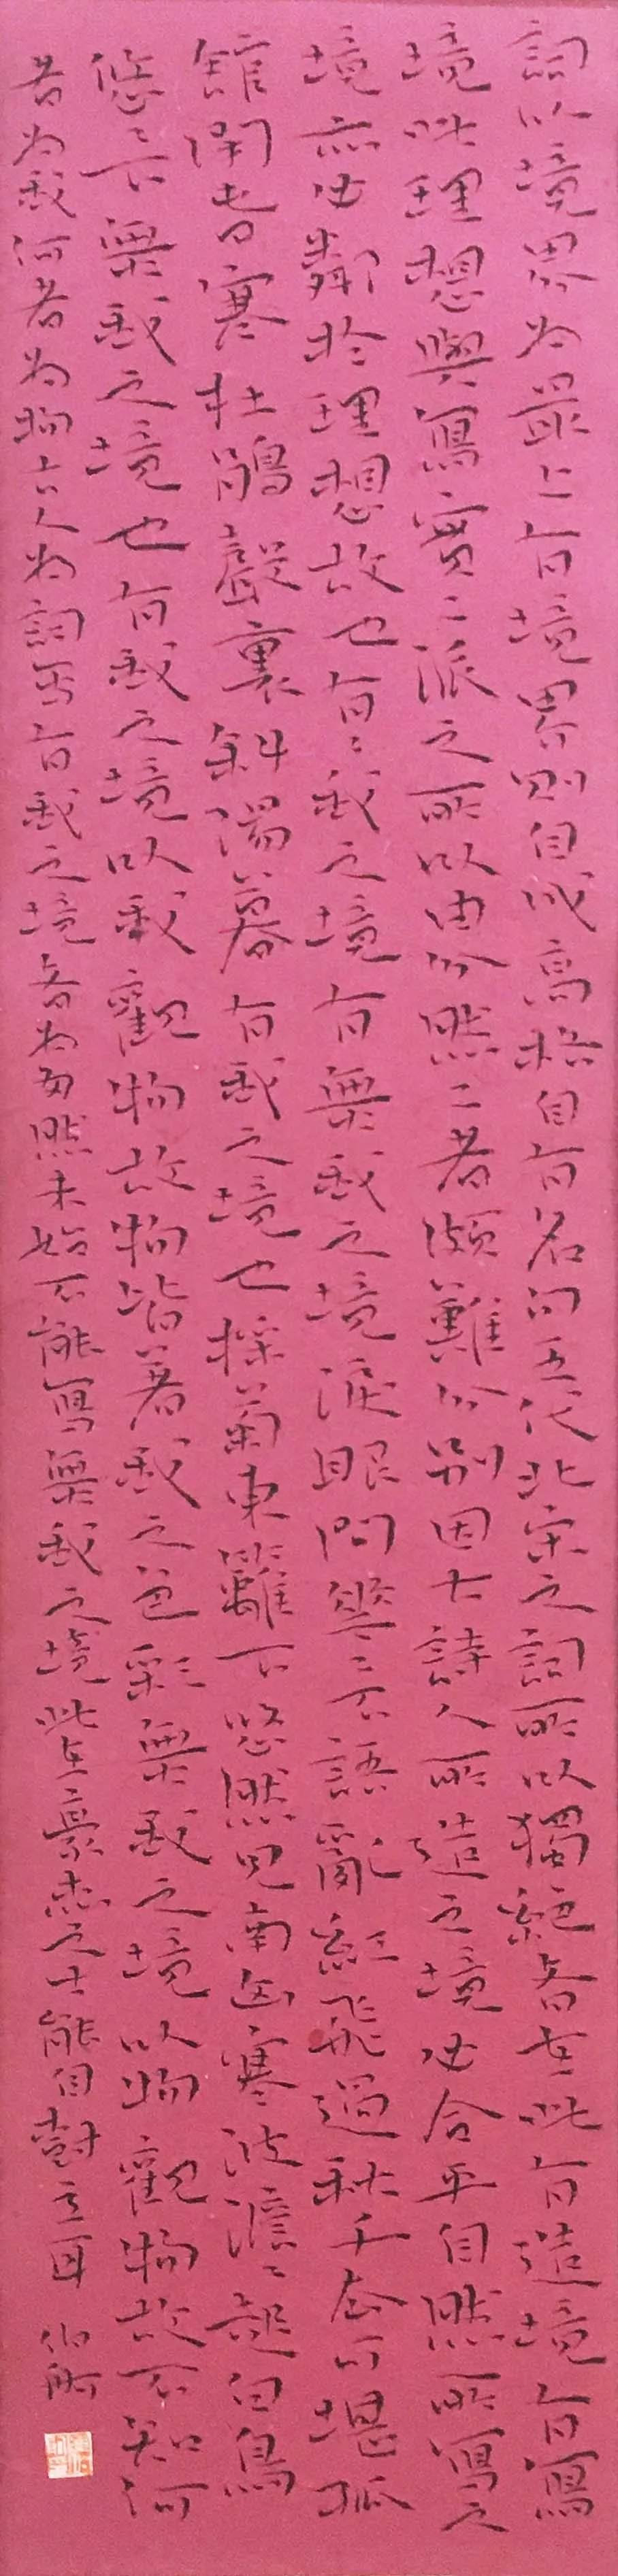 詞以境界為最上有境界則自成高格自有名句五代北宋之詞所以獨絕者在此有造境有寫
境此理想與寫實二派之所以由分然二者頗難分別因大詩人所造之境必合乎自然所寫之
境亦必鄰於理想故也有〻我之境有無我之境淚眼問花〻不語亂紅飛過秋千去可堪孤
館閉春寒杜鵑聲裏斜陽暮有我之境也採菊東籬下悠然見南山寒波澹〻起白鳥
悠〻下無我之境也有我之境以我觀物故物皆著我之色彩無我之境以物觀物故不知何
者為我何者為物古人為詞寫有我之境者為多然未始不能寫無我之境此在豪傑之士能自樹立耳 伯